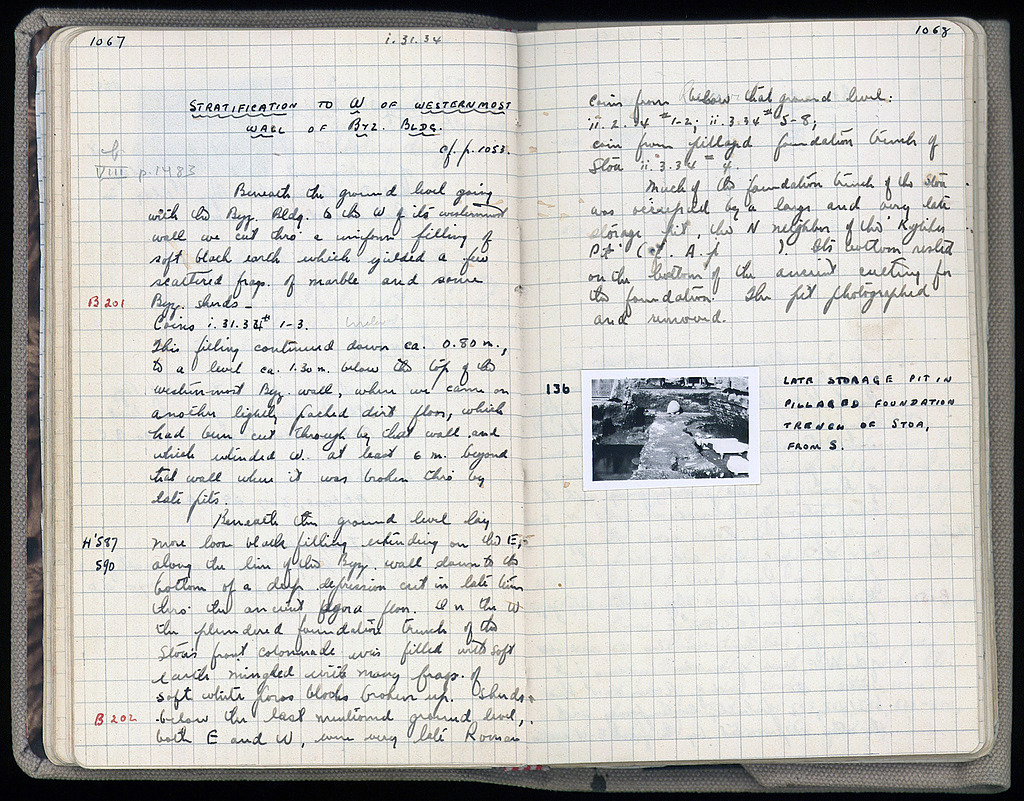 1067
i.31.34
STRATIFICATION TO W OF WESTERNMOST
WALL OF BYZ. BLDG.
cf. p. 1053.
cf
VIII p. 1483
Beneath the ground level going
with the Byz. Bldg. to the W of its westernmost
wall we cut thro' a uniform filling of
soft black earth which yielded a few
scattered frags. of marble and some
B 201
Byz. sherds —
Coins i.31.34 # 1-3.
This filling continued down ca. 0.80 m.,
to a level ca. 1.30 m. below the top of the
westernmost Byz. wall, where we came on
another lightly packed dirt floor, which
had been cut through by that wall and
which extended W. at least 6 m. beyond
that wall where it was broken thro' by
late pits.
Beneath this ground level lay
H'587
more loose black filling extending on the E,
590
along the line of the Byz. wall down to the
bottom of a deep depression cut in late times
thro' the ancient Agora floor. On the W
the plundered foundation trench of the
Stoa's front colonnade was filled with soft
earth mingled with many frags. of
soft white poros blocks broken up. Sherds
B 202
below the last mentioned ground level,
both E and W, were very late Roman
1068
coins from below that ground level:
ii.2.34 # 1-2; ii.3.34 # 5-8;
coin from pillaged foundation trench of
Stoa ii.3.34 # 4.
Much of the foundation trench of the stoa
was occupied by a large and very late
storage pit, the N neighbor of the 'Kyriakes
Pit' (cf. A. p ). Its bottom rested
on the bottom of the ancient cutting for
the foundation. The pit photographed
and removed.
136
LATE STORAGE PIT IN
PILLAGED FOUNDATION
TRENCH OF STOA,
FROM S.